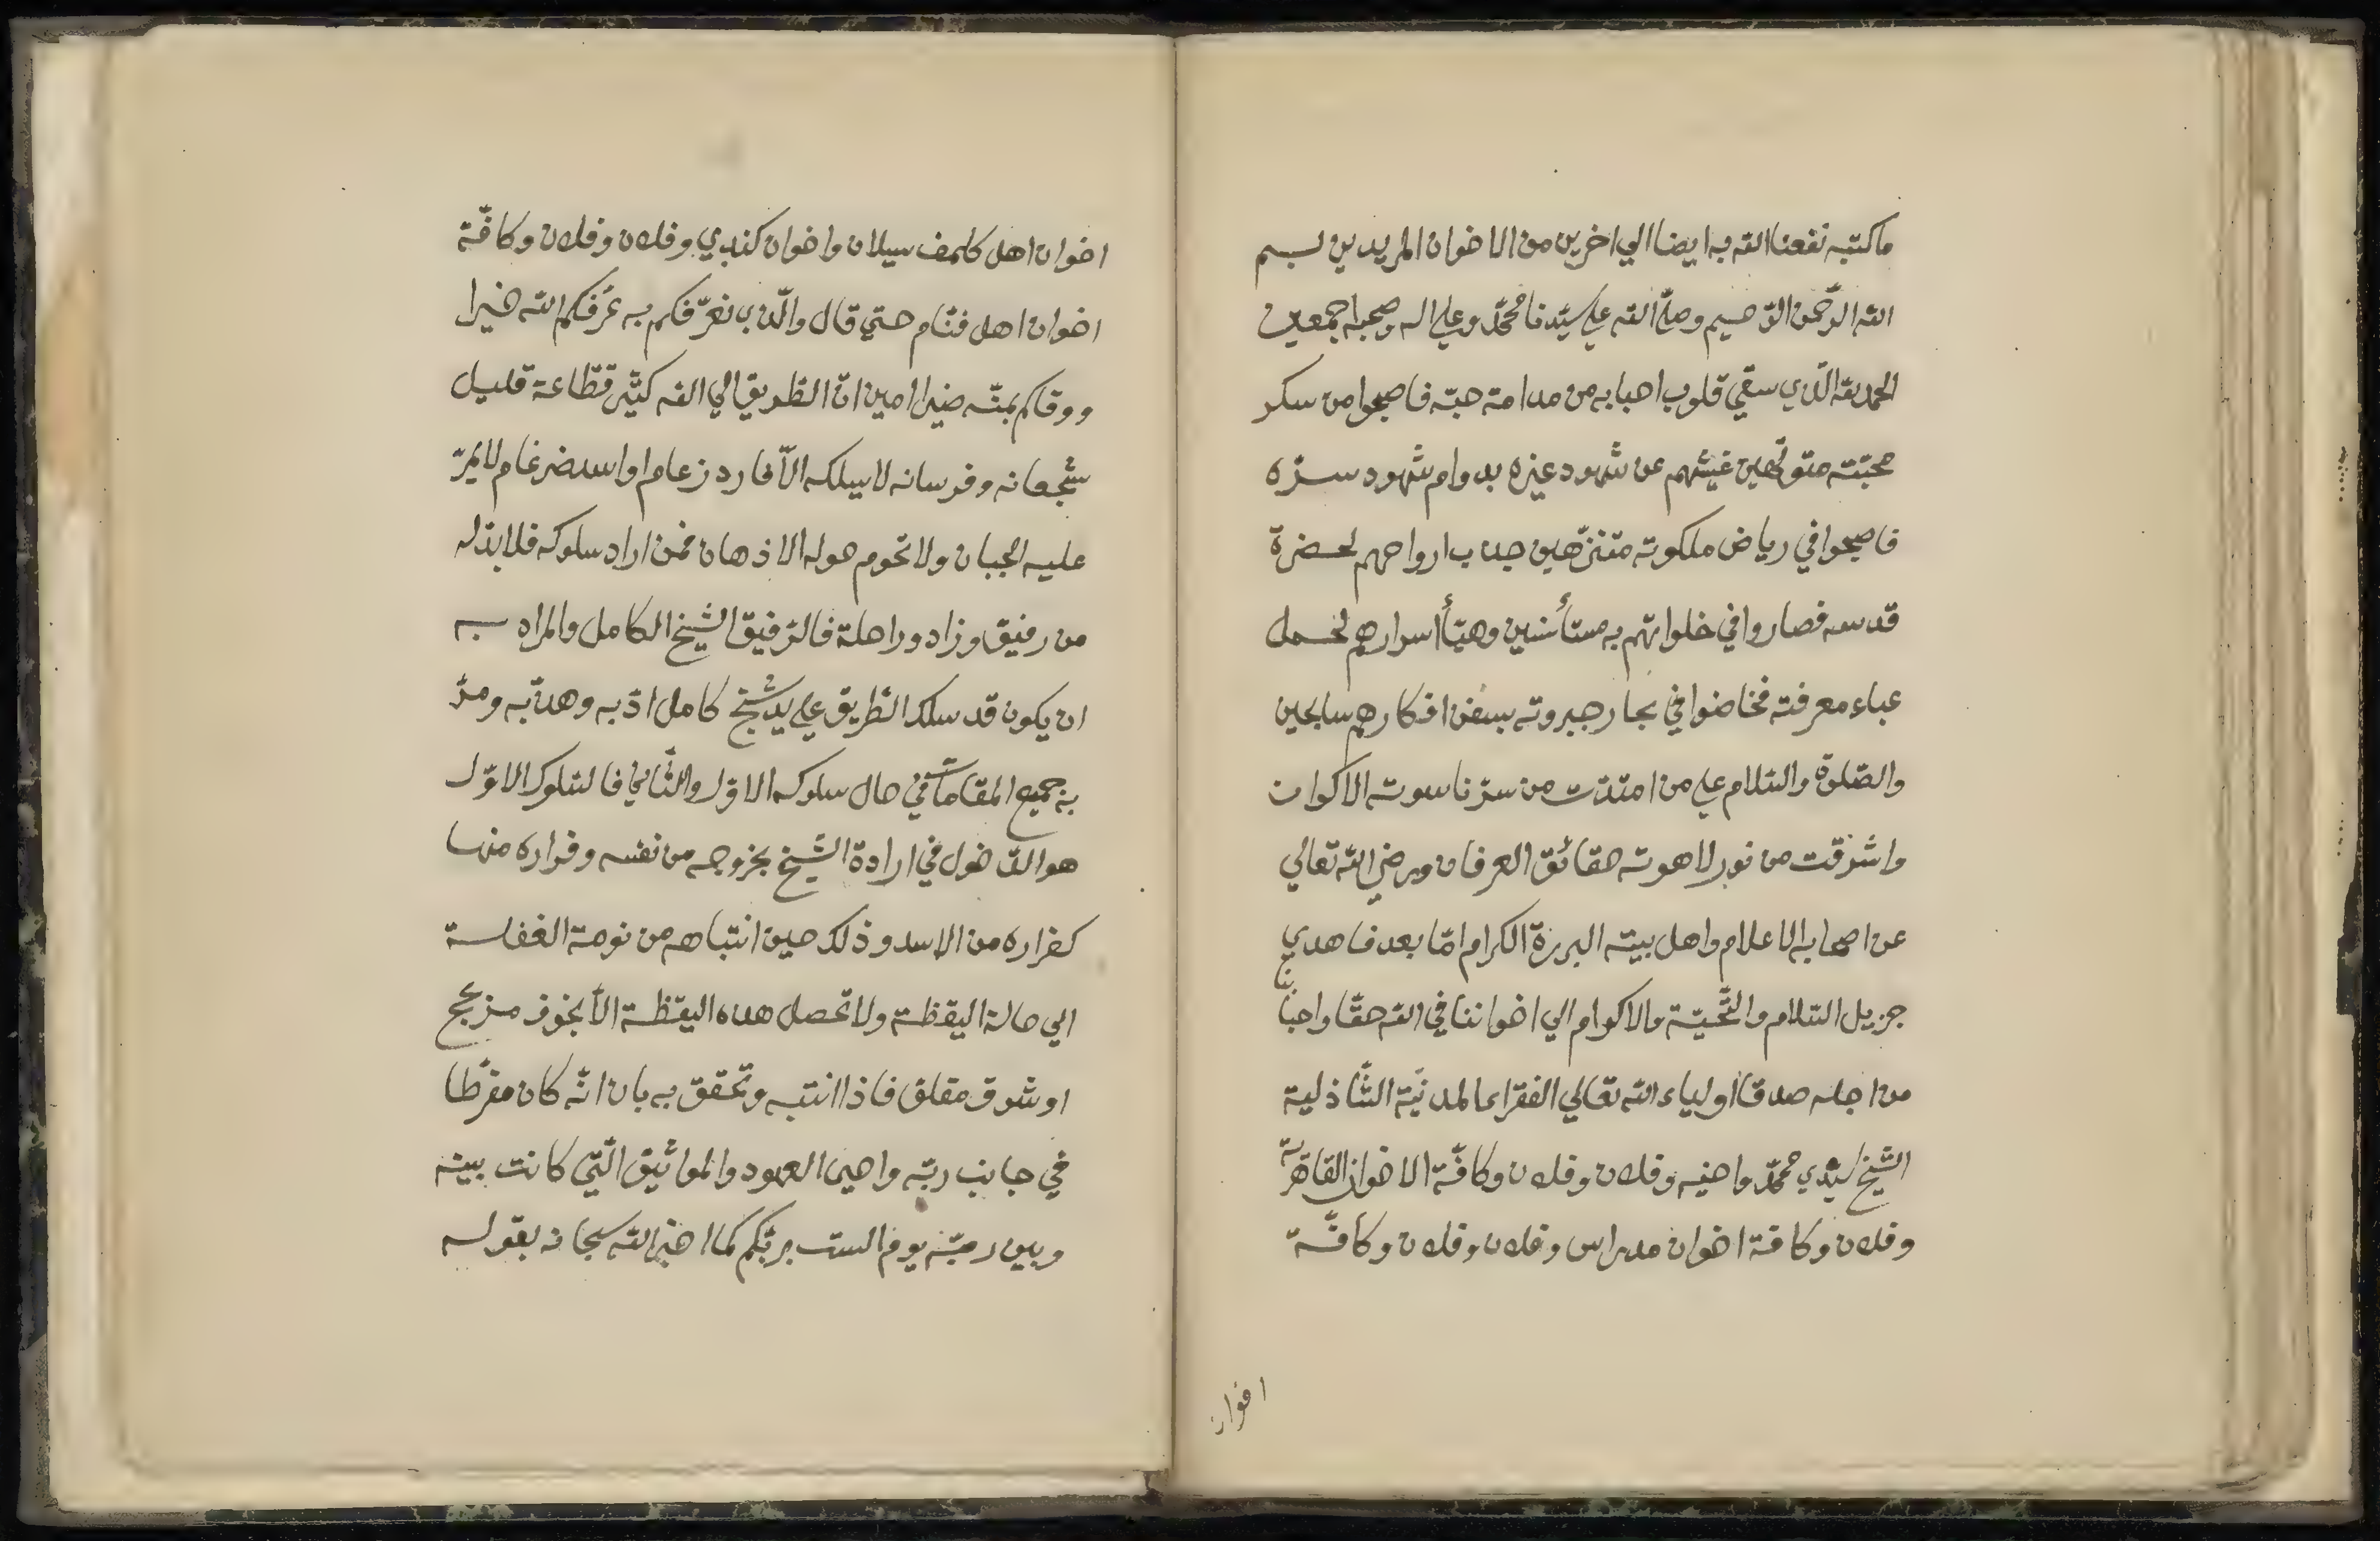 ما كتبه نفعنا الله به ايضا الي اخرين من الاخوان المريدين بسم
الله الرّحمن الرّحيم وصلّي الله علي سيّدنا محمّد وعلي اله وصحبه اجمعين
الحمد لله الّذي سقي قلوب احبابه من مدامة حبّه فاصبحوا من سكر
محبّته متولّهين غيبهم عن شهود غيره بدوام شهود سرّه
فاصبحوا في رياض ملكوته متنزّهين جذب ارواحهم لحضرة
قدسه فصاروا في خلواتهم به مستأنسين وهيّأ اسرارهم لحمل
عباء معرفته فخاضوا في بحار جبروته بسفن افكارهم سابحين
والصّلوة والسّلام علي من امتدّت من سرّ ناسوته الاكوان
واشرقت من نور لاهوته حقائق العرفان ورضي الله تعالي
عن اصحابه الاعلام واهل بيته البررة الكرام امّا بعد فاهدي
جزيل السّلام والتّحيّة والاكرام الي اخواننا في الله حقّا واحبّائنا
من اجله صدقا اولياء الله تعالي الفقراء المدنيّة الشّاذلية
الشّيخ سيّدي محمّد واخيه وفلان وفلان وكافّة الاخوان القاهريّة
وفلان وكافة اخوان مدراس وفلان وفلان وكافّة
اخوان
اخوان اهل كلمف سيلان واخوان كندي وفلان وفلان وكافّة
اخوان اهل فتنام حتي قال والّذي نعرّفكم به عرّفكم الله خيرا
ووقاكم بمنّه ضيرا امين انّ الطّريق الي الله كثير قطّاعة قليل
شجعانه وفرسانه لا يسلكه الّا فارد زعام او اسد ضرغام لا يمرّ
عليه الجبان ولا تحوم حوله الاذهان فمن اراد سلوكه فلا بدّ له
من رفيق وزاد وراحلة فالرّفيق الشّيخ الكامل والمراد به
ان يكون قد سلك الطّريق علي يد شيخ كامل ادّبه وهذّبه ومرّ
به جميع المقامات في حال سلوكه الاوّل والثّاني فالسّلوك الاوّل
هو الدّخول في ارادة الشّيخ بخروجه من نفسه وفراره منها
كفراره من الاسد وذلك حين انتباهه من نومة الغفلة
الي حالة اليقظة ولا تحصل هذه اليقظة الّا بخوف مزعج
او شوق مقلق فاذا انتبه وتحقق به بان انّه كان مفرّطا
في جانب ربّه واحيى العهود والمواثيق الّتي كانت بينه
وبين ربّه يوم الست بربّكم كما اخبر الله سبحانه بقوله